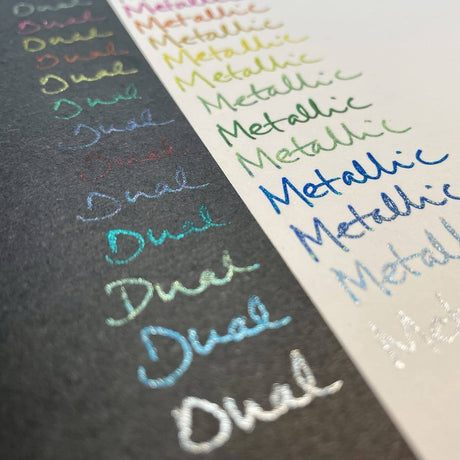 Dual
Dual Metallic
Dual Metallic
Dual Metallic
Dual Metallic
Dual Metallic
Dual Metallic
Dual Metallic
Dual Metallic
Dual Metallic
Dual Metallic
Dual Metall
Dual Met